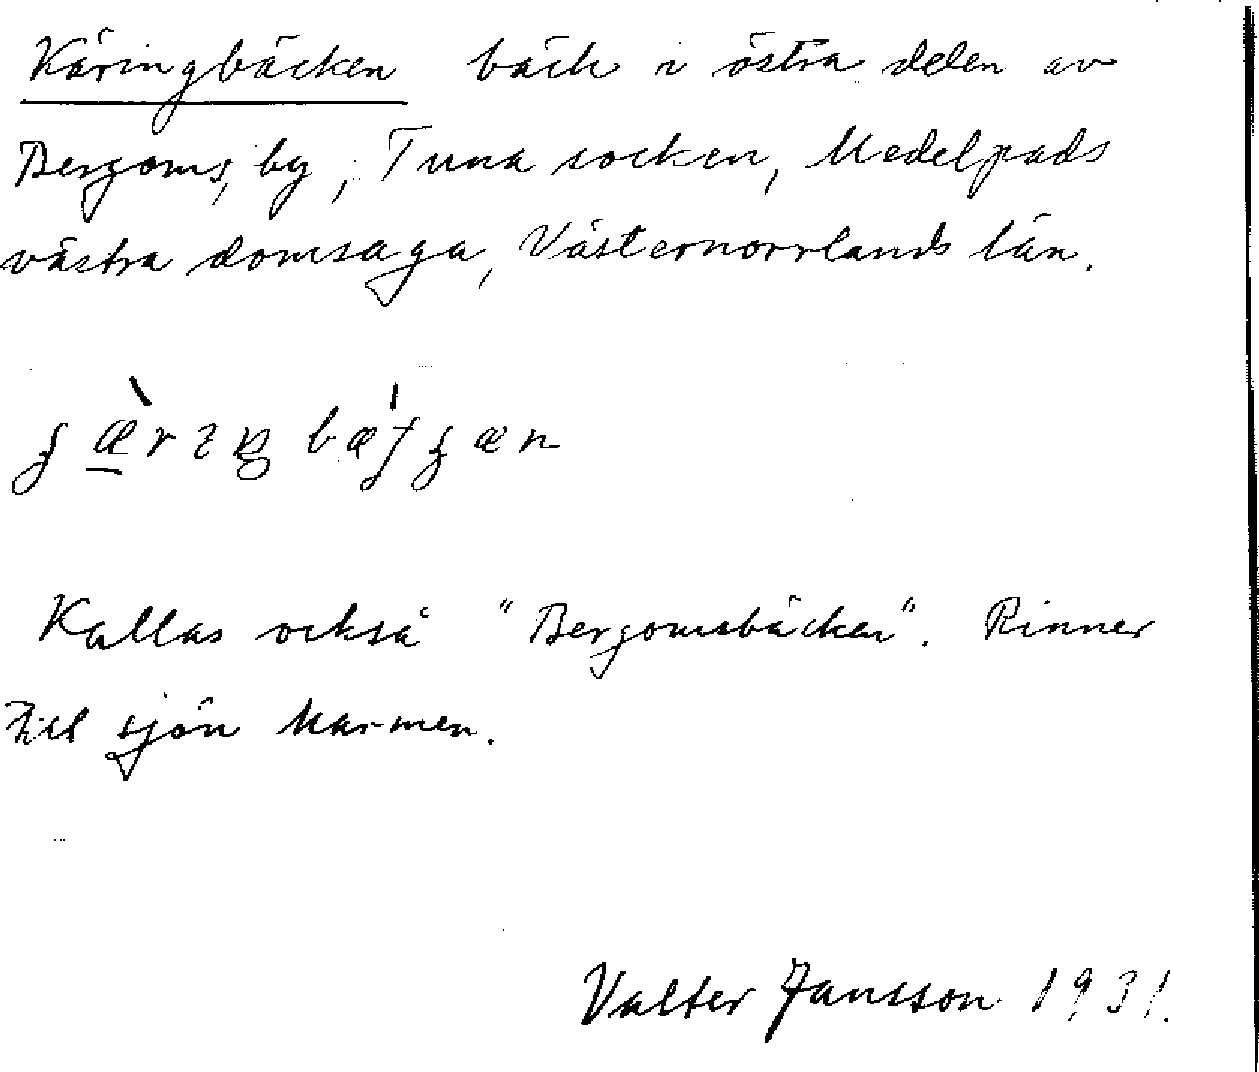 Käringbäcken bäck i östra delen av
Bergoms by, Tuna socken, Medelpads
västra domsaga, Västernorrlands län.
Kallas också "Bergomsbäcken". Rinner
till sjön Marmen.
Valter Jansson 1931.